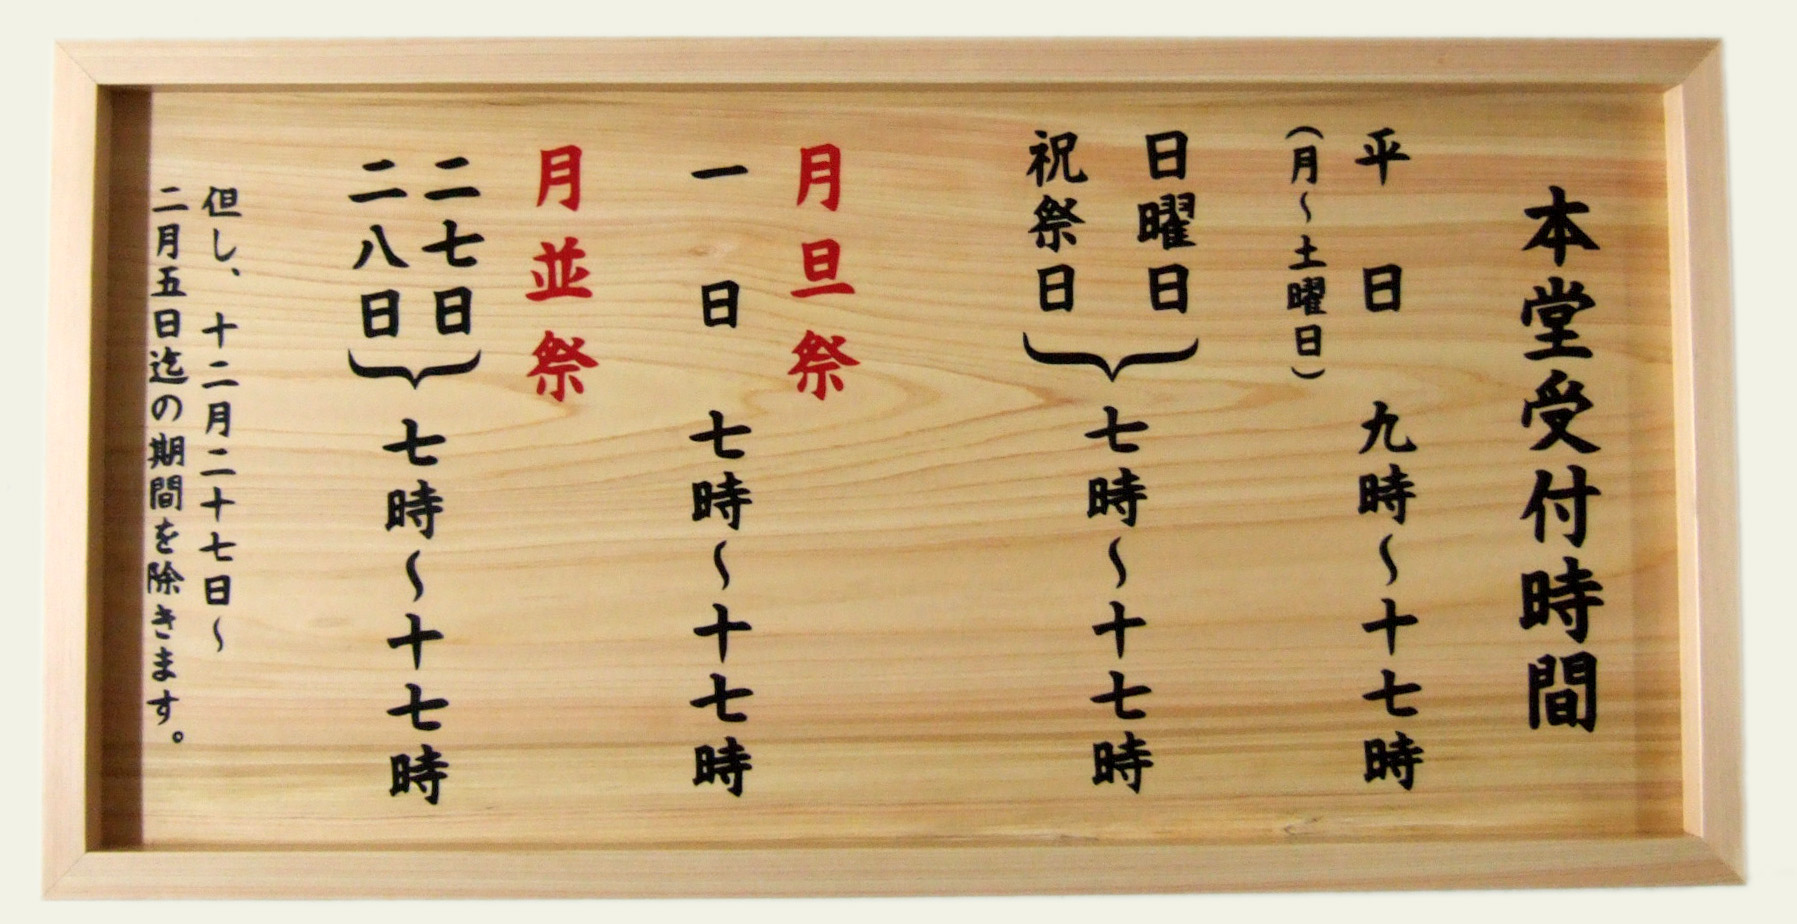 本堂受付時間
平日 九時〜十七時
(月〜土曜日)
日曜日
祝祭日
七時〜十七時
月旦祭
一日 七時〜十七時
月並祭
二七日
二八日
七時〜十七時
但し、十二月二十七日〜
二月五日迄の期間を除きます。